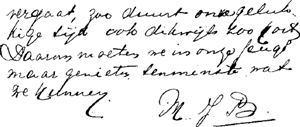 vergaat, zoo duurt onze geluk-
kige tijd ook dikwijls zoo kort
Daarom moeten we in onze jeugd
maar genieten, tenminste wat
we kunnen.
M. J. B.